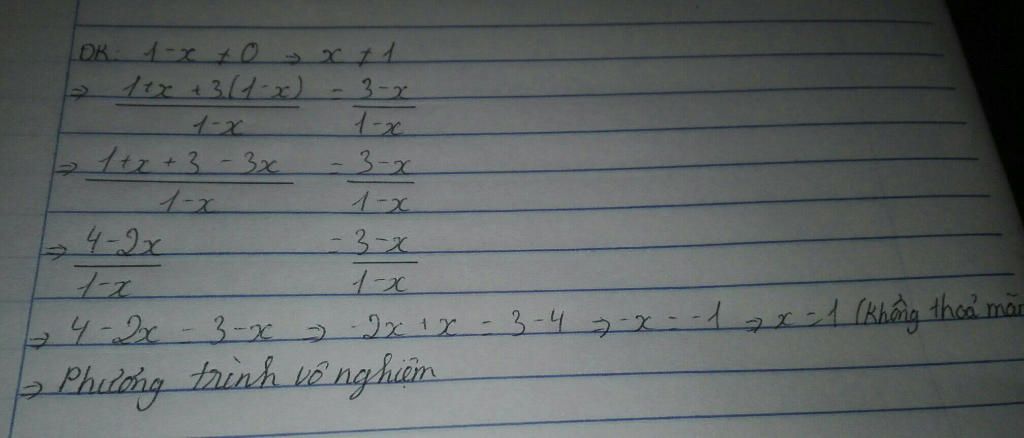 ĐK: 1-x ≠ 0 → x ≠ 1
⇒ (1+x + 3(1-x))/(1-x) = (3-x)/(1-x)
⇒ (1+x + 3 - 3x)/(1-x) = (3-x)/(1-x)
⇒ (4-2x)/(1-x) = (3-x)/(1-x)
⇒ 4-2x = 3-x ⇒ -2x+x = 3-4 ⇒ -x = -1 ⇒ x = 1 (không thoả mãn
⇒ Phương trình vô nghiệm